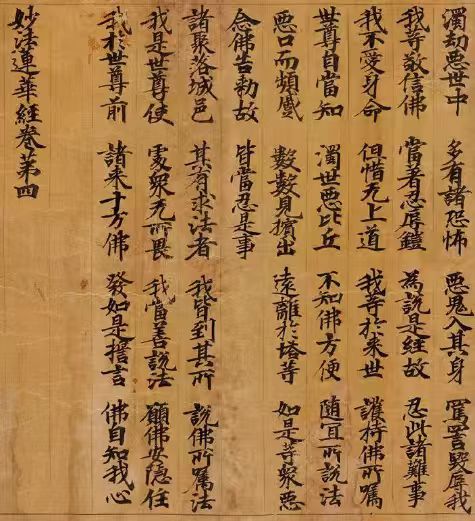 濁劫惡世中 多有諸恐怖 惡鬼入其身 罵詈毀辱我
我等敬信佛 當著忍辱鎧 為說是經故 忍此諸難事
我不愛身命 但惜无上道 我等於來世 護持佛所囑
世尊自當知 濁世惡比丘 不知佛方便 隨宜所說法
惡口而頻蹙 數數見擯出 遠離於塔寺 如是等眾惡
念佛告勑故 皆當忍是事
諸聚落城邑 其有求法者 我皆到其所 說佛所囑法
我是世尊使 處眾无所畏 我當善說法 願佛安隱住
我於世尊前 諸來十方佛 發如是誓言 佛自知我心
妙法蓮華經卷第四